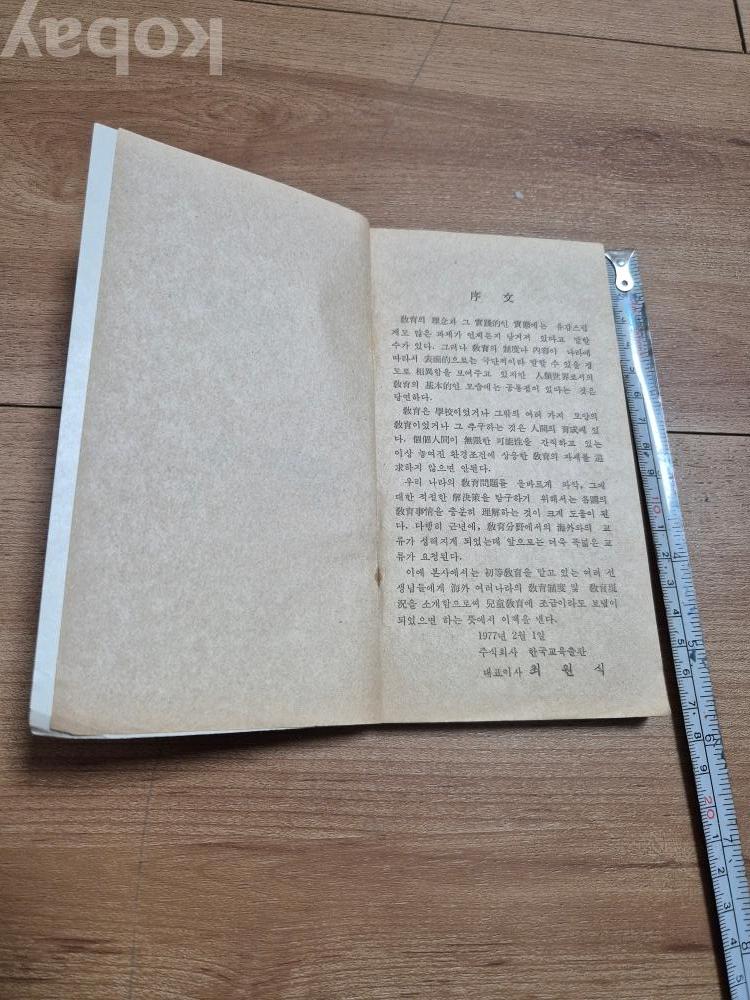 kobay
序 文
敎育의 理念과 그 實踐的인 實態에는 유감스럽
게도 많은 과제가 언제든지 남겨져 있다고 말할
수가 있다. 그러나 敎育의 制度나 內容이 나라에
따라서 表面的으로는 극단적이라 말할 수 있을 정
도로 相異함을 보여주고 있지만 人類世界로서의
敎育의 基本的인 모습에는 공통점이 있다는 것은
당연하다.
敎育은 學校이었거나 그밖의 여러 가지 모양의
敎育이었거나 그 추구하는 것은 人間의 育成에 있
다. 個個人間이 無限한 可能性을 간직하고 있는
이상 놓여진 환경조건에 상응한 敎育의 자세를 追
求하지 않으면 안된다.
우리 나라의 敎育問題를 올바르게 파악, 그에
대한 적절한 解決策을 탐구하기 위해서는 各國의
敎育事情을 충분히 理解하는 것이 크게 도움이 된
다. 다행히 근년에, 敎育分野에서의 海外와의 교
류가 성해지게 되었는데 앞으로는 더욱 폭넓은 교
류가 요청된다.
이에 본사에서는 初等敎育을 맡고 있는 여러 선
생님들에게 海外 여러나라의 敎育制度 및 敎育現
況을 소개함으로써 兒童敎育에 조금이라도 보탬이
되었으면 하는 뜻에서 이책을 낸다.
1977년 2월 1일
주식회사 한국교육출판
대표이사 최 원 식